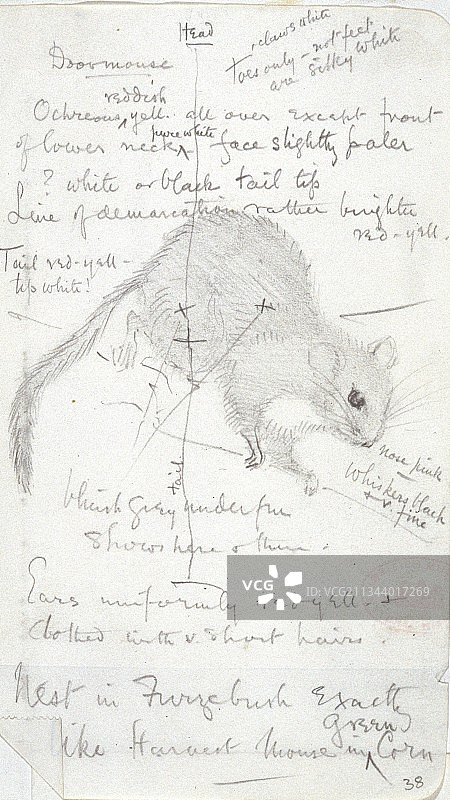 Head
claws white
Toes only - not feet
are silky white
Doormouse
reddish
Ochreous yell. all over except front
pure white
of lower neck face slightly paler
? white or black tail tip
Line of demarcation rather brighter
red-yell.
Tail red-yell-
tip white!
nose pink
Whiskers black
+ v. fine
tail
bluish grey under fur
Shows here & there.
Ears uniformly red-yell. +
Clothed with v. short hairs.
Nest in Furzebush Exactly
green
like Harvest Mouse in Corn
38
VCG
VCG.COM
ID: VCG211344017269